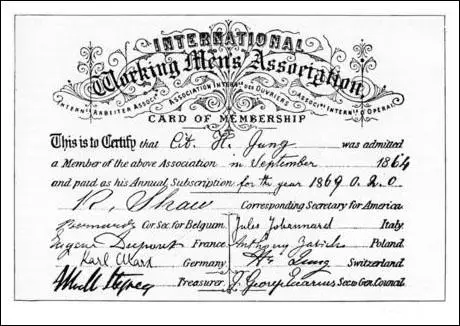 INTERNATIONAL
Working Men's Association
INTERN. ARBEITER ASSOC. ASSOCIATION INTERN.LE DES OUVRIERS ASSOCIAZ. INTERN. D'OPERAI
CARD OF MEMBERSHIP
This is to Certify that Cit. H. Jung was admitted
a Member of the above Association in September 1864
and paid as his Annual Subscription for the year 1869 0.2.0.
R. Shaw Corresponding Secretary for America
Bernard Cor. Sec. for Belgium. Jules Johannard Italy.
Eugène Dupont France. Anthony Zabicki Poland.
Karl Marx Germany. H. Jung Switzerland.
Treasurer. J. George Eccarius Sec. to Genl. Council.